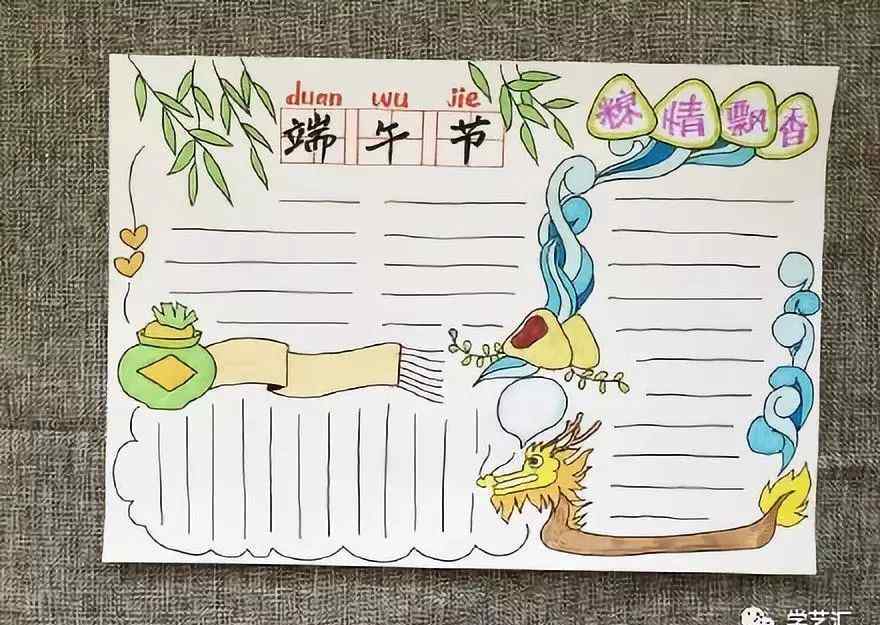 duan wu jie
端午节
粽情飘香
学艺汇